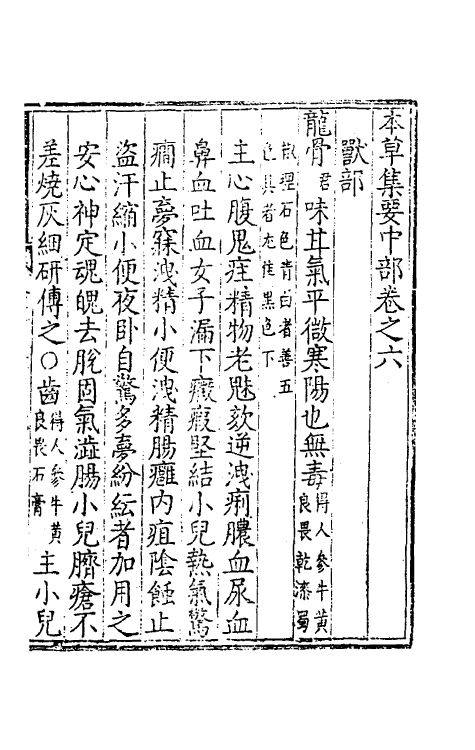 本草集要中部卷之六
獸部
龍骨君味甘氣平微寒陽也無毒得人參牛黃良畏乾漆蜀
椒理石色青白者善五色具者尤佳黑色下
主心腹鬼疰精物老魅欬逆洩痢膿血尿血
鼻血吐血女子漏下癥瘕堅結小兒熱氣驚
癇止夢寐洩精小便洩精腸癰內疽陰蝕止
盜汗縮小便夜臥自驚多夢紛紜者加用之
安心神定魂魄去脫固氣澁腸小兒臍瘡不
差燒灰細研傅之○齒得人參牛黃良畏石膏主小兒